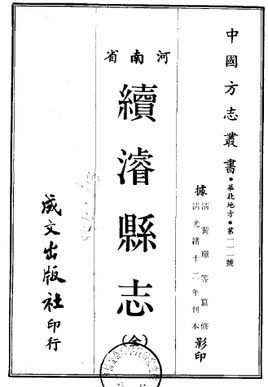 中國方志叢書·華北地方·第一一一號
據清黃璟等纂修
清光緒十二年刊本影印
河南省
續濬縣志(全)
成文出版社印行